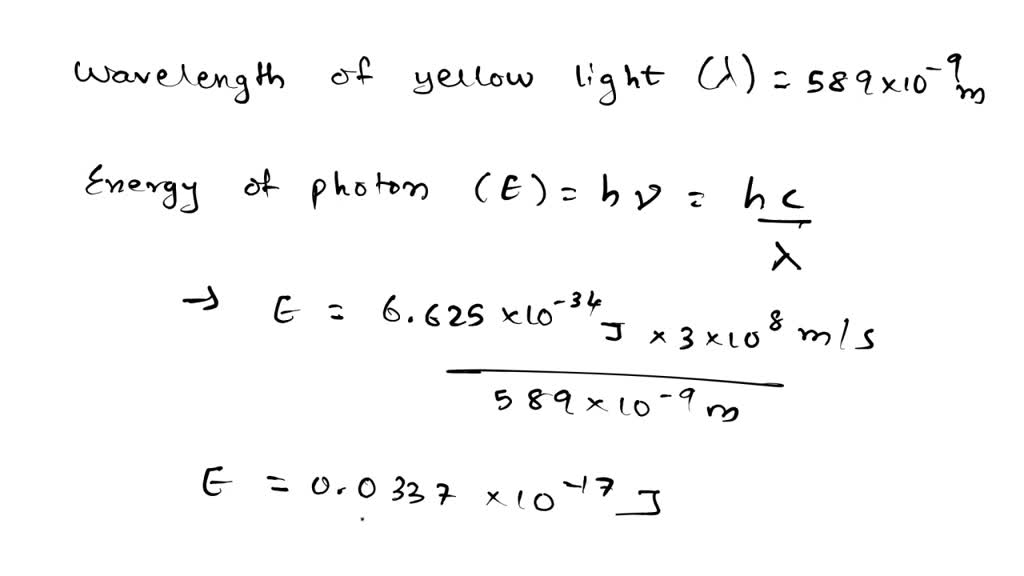 wavelength of yellow light (λ) = 589 × 10⁻⁹ m
Energy of photon (E) = hν = hc
λ
→ E = 6.625 × 10⁻³⁴ J × 3 × 10⁸ m/s
589 × 10⁻⁹ m
E = 0.0337 × 10⁻¹⁷ J